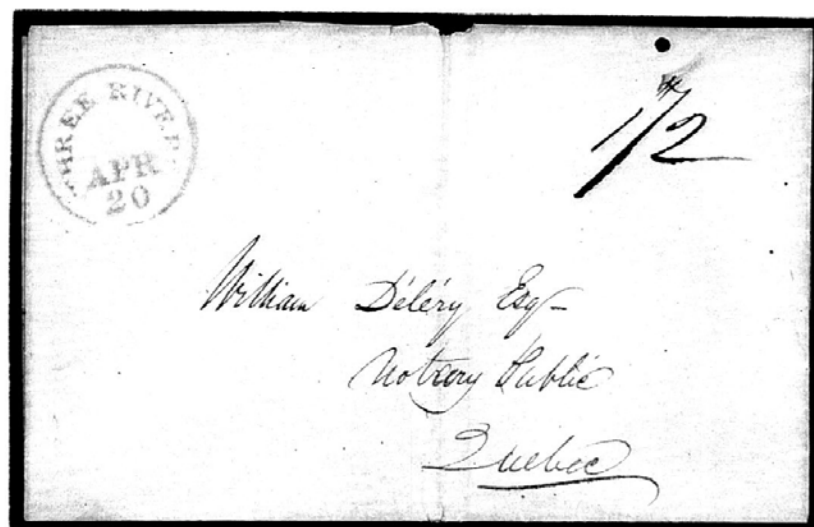 THREE RIVER
APR
20
1/2
William Déléry Esq
Notary Public
Québec